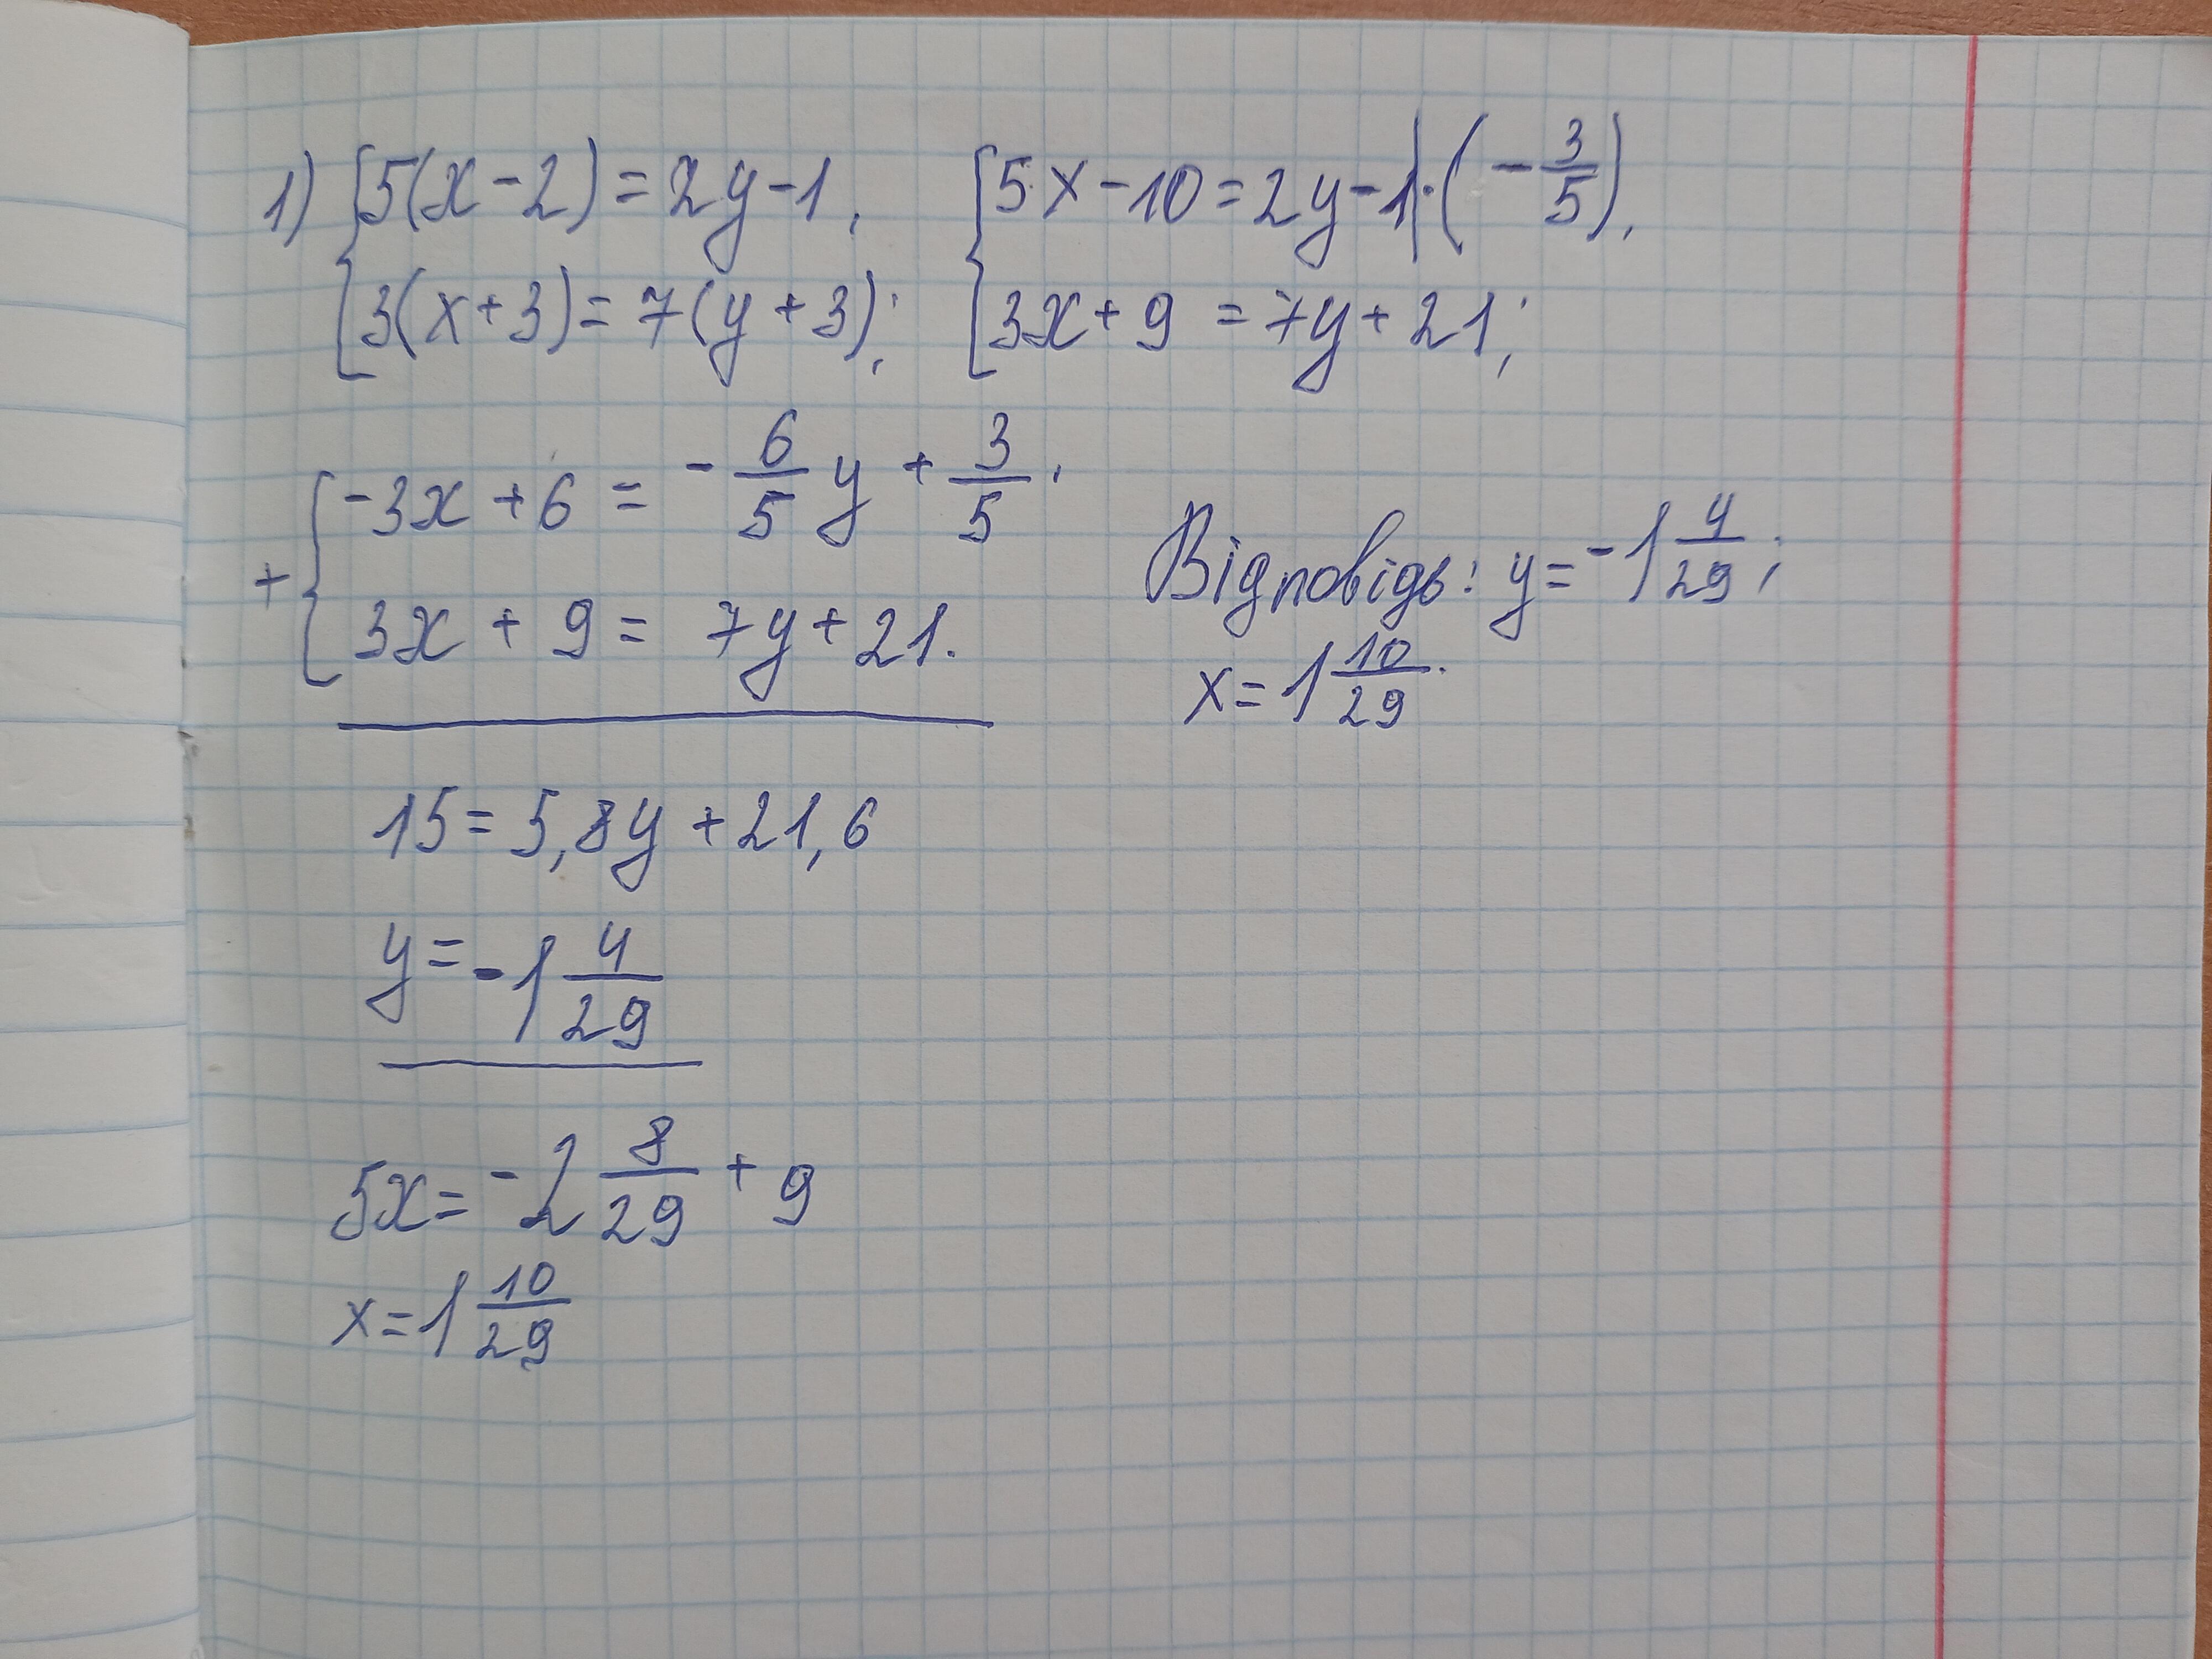 1) { 5(x-2)=2y-1, { 5x-10=2y-1|·(-3/5),
3(x+3)=7(y+3); 3x+9=7y+21;
+ { -3x+6=-6/5y+3/5,
3x+9=7y+21.
15=5,8y+21,6
y=-1 4/29
5x=-2 8/29+9
x=1 10/29
Відповідь: y=-1 4/29;
x=1 10/29.